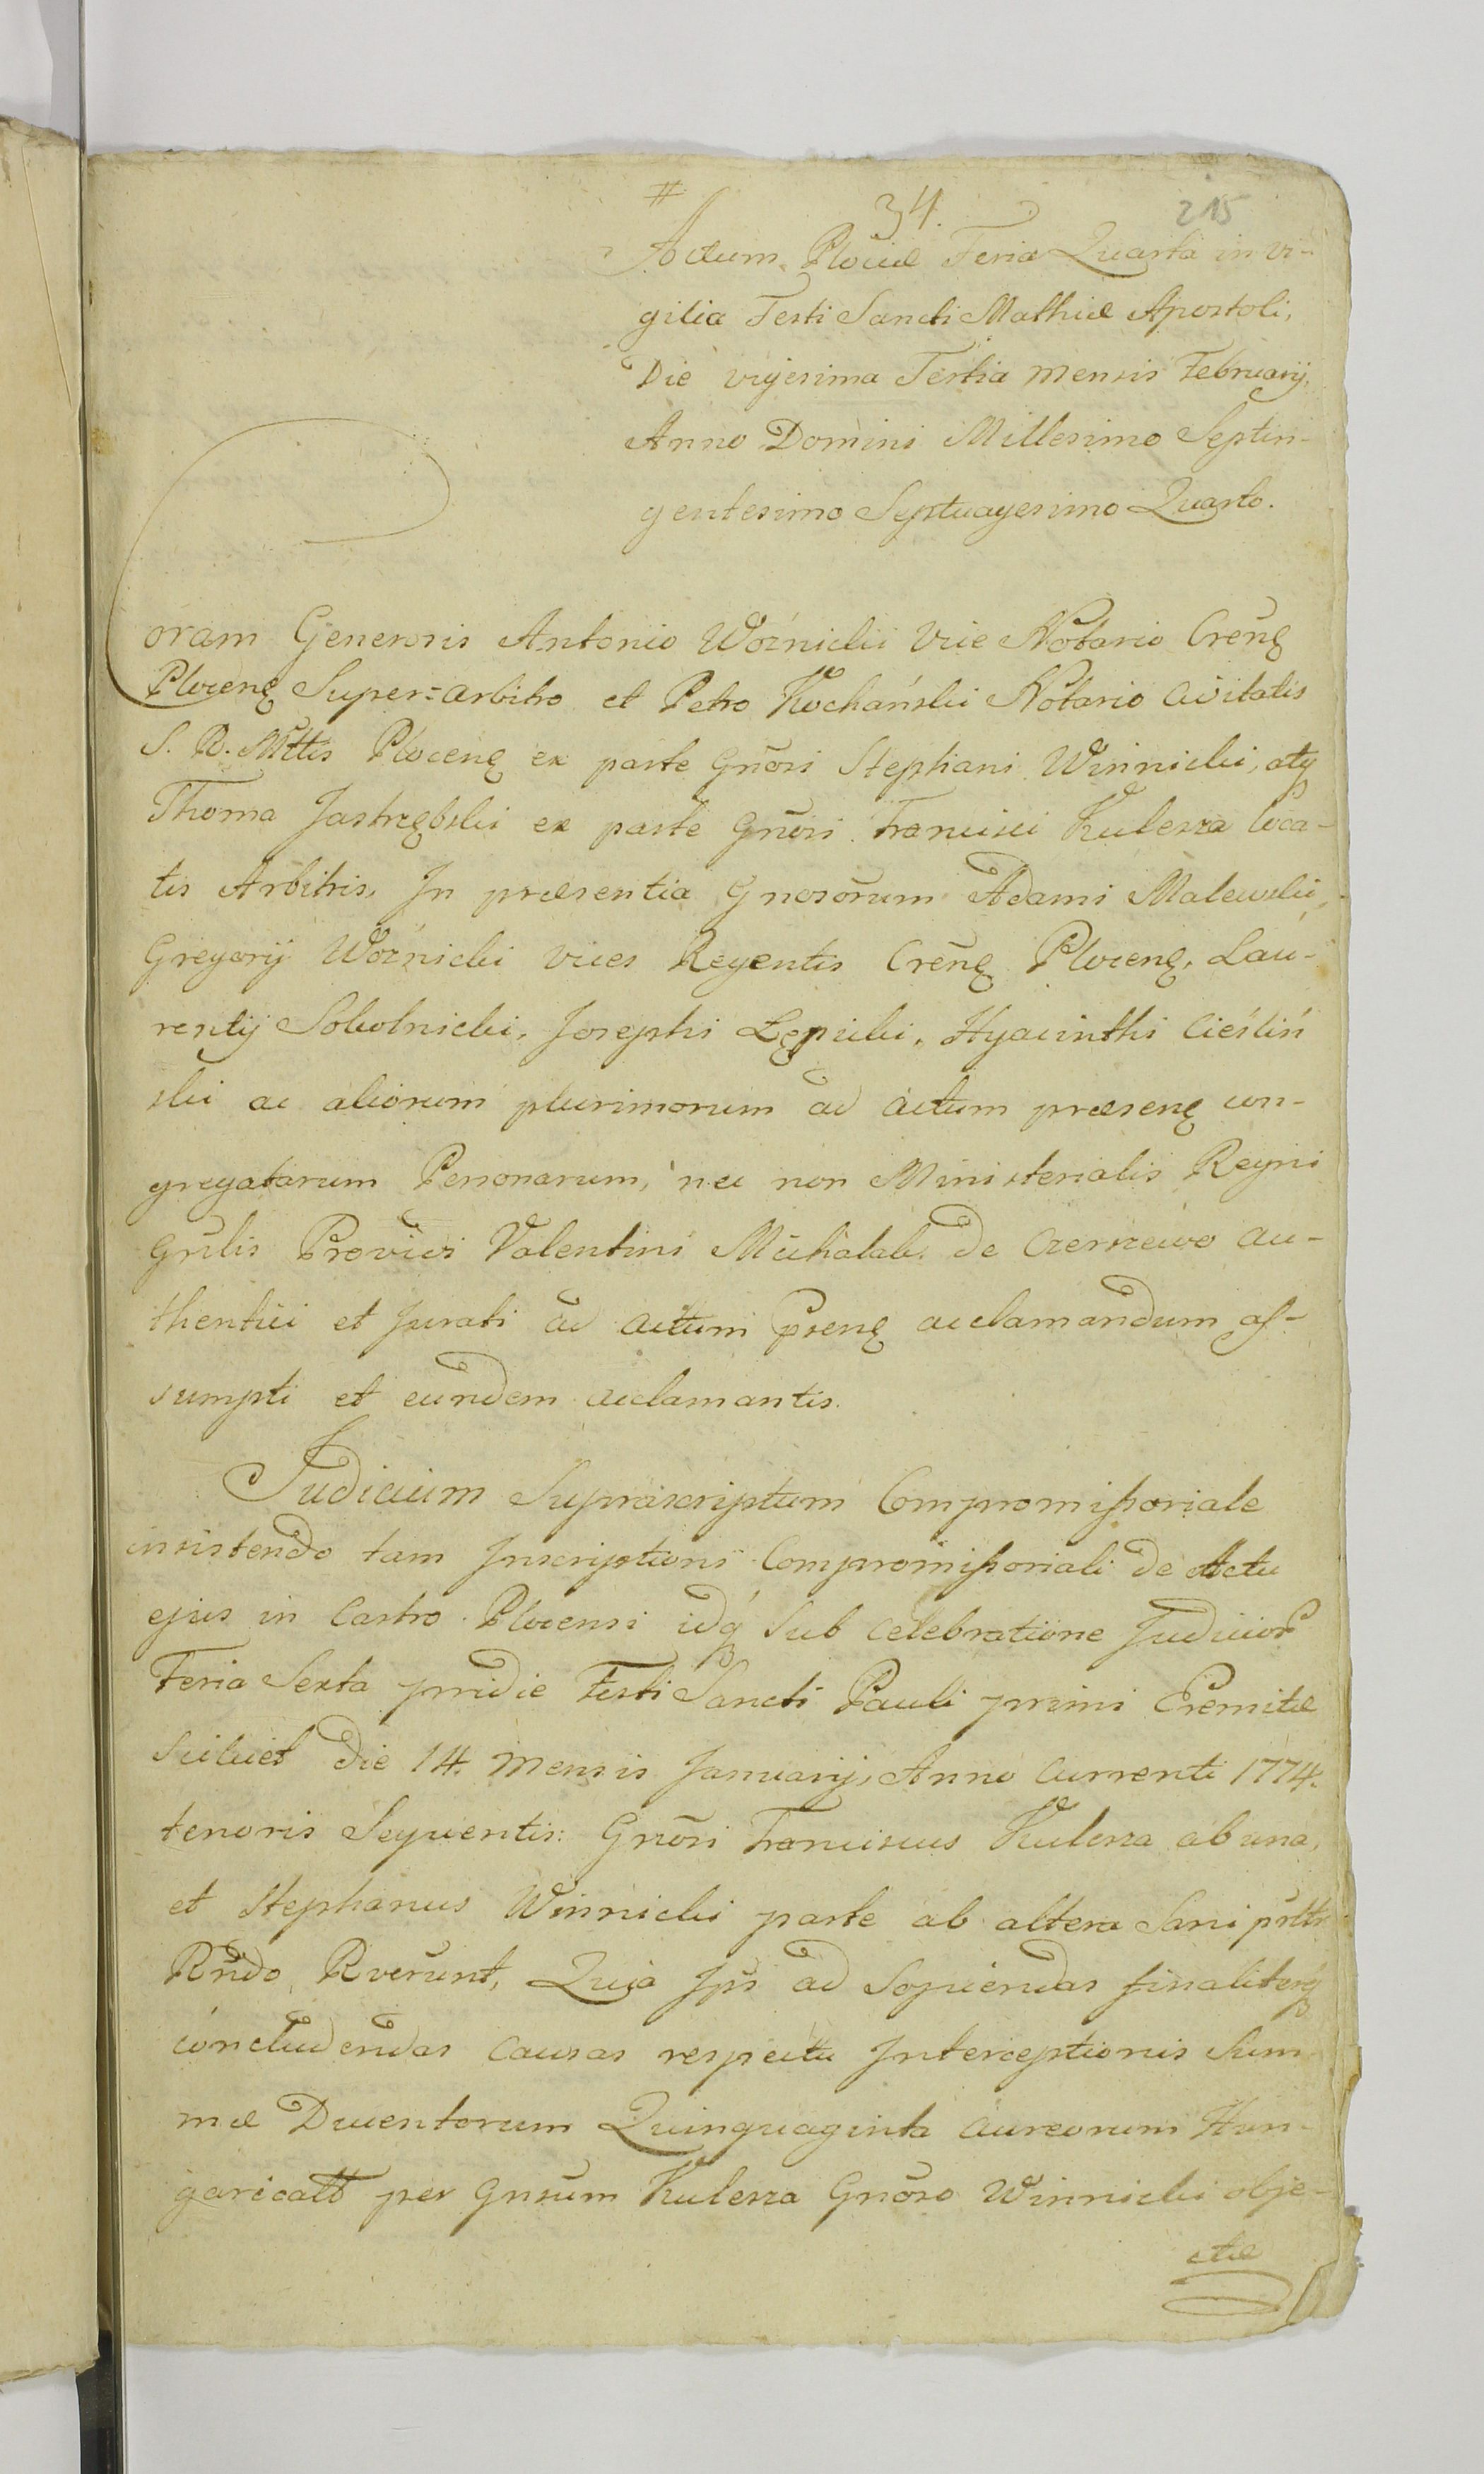 #
34.
215
Actum Plociæ Feria Quarta in vi-
gilia Festi Sancti Mathiæ Apostoli,
Die vigesima Tertia mensis Februarij,
Anno Domini Millesimo Septin-
gentesimo Septuagesimo Quarto.
Coram Generosis Antonio Woźnicki Vice Notario Cren̄ę
Plocenę Super=arbitro et Petro Kochański Notario Civitatis
S. R. Mttis Plocenę ex parte Gnōsi Stephani Winnicki, atq
Thoma Jastrzębski ex parte Gnōsi Francisci Kulesza loca-
tis Arbitris, In præsentia Gnosōrum Adami Malewski,
Gregorij Woźnicki vices Regentis Cren̄ę Plocenę, Lau-
rentij Sokolnicki, Josephi Łępicki, Hyacinthi Cieśliń
ski ac aliorum plurimorum ad actum præsenę con-
gregatarum Personarum, nec non Ministerialis Regni
Grūlis Providi Valentini Michalak de Czerszewo au-
thentici et Jurati ad actum Prenę acclamandum as-
sumpti et eundem acclamantis.
Judicium Suprascriptum Compromissoriale
insistendo tam Inscriptioni Compromissoriali de Actu
ejus in Castro Plocensi idq Sub celebratione Judicior
Feria Sexta pridie Festi Sancti Pauli primi Eremitæ
Scilicet die 14. mensis Januarij, Anno currenti 1774.
tenoris Sequentis: Gnōsi Franciscus Kulesza ab una,
et Stephanus Winnicki parte ab altera Sani prttr
Rndo Rverunt, Quia Ipsi ad Sopiendas finaliterq
concludendas causas respectu Interceptionis Sum-
mæ Ducentorum Quinquaginta aureorum Hun-
garicall per Gnsum Kulesza Gnōso Winnicki obje-
ctæ